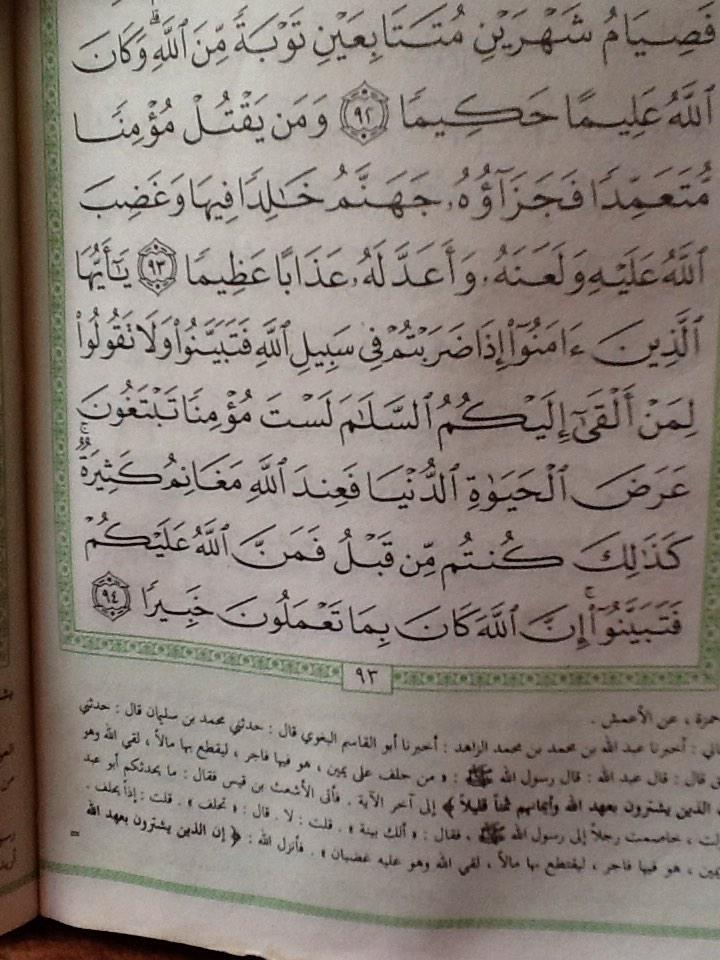 فَصِيَامُ شَهْرَيْنِ مُتَتَابِعَيْنِ تَوْبَةً مِّنَ ٱللَّهِ ۗ وَكَانَ
ٱللَّهُ عَلِيمًا حَكِيمًا ٩٢ وَمَن يَقْتُلْ مُؤْمِنًا
مُّتَعَمِّدًا فَجَزَآؤُهُۥ جَهَنَّمُ خَـٰلِدًا فِيهَا وَغَضِبَ
ٱللَّهُ عَلَيْهِ وَلَعَنَهُۥ وَأَعَدَّ لَهُۥ عَذَابًا عَظِيمًا ٩٣ يَـٰٓأَيُّهَا
ٱلَّذِينَ ءَامَنُوٓا۟ إِذَا ضَرَبْتُمْ فِى سَبِيلِ ٱللَّهِ فَتَبَيَّنُوا۟ وَلَا تَقُولُوا۟
لِمَنْ أَلْقَىٰٓ إِلَيْكُمُ ٱلسَّلَـٰمَ لَسْتَ مُؤْمِنًا تَبْتَغُونَ
عَرَضَ ٱلْحَيَوٰةِ ٱلدُّنْيَا فَعِندَ ٱللَّهِ مَغَانِمُ كَثِيرَةٌ ۚ
كَذَٰلِكَ كُنتُم مِّن قَبْلُ فَمَنَّ ٱللَّهُ عَلَيْكُمْ
فَتَبَيَّنُوٓا۟ ۚ إِنَّ ٱللَّهَ كَانَ بِمَا تَعْمَلُونَ خَبِيرًا ٩٤
٩٣
حمزة ، عن الأعمش .
أخبرنا عبد الله بن محمد بن محمد الزاهد : أخبرنا أبو القاسم البغوي قال : حدثني محمد بن سليمان قال : حدثني
قال : قال عبد الله : قال رسول الله ﷺ : « من حلف على يمين ، هو فيها فاجر ، ليقطع بها مالاً ، لقي الله وهو
الذين يشترون بعهد الله وأيمانهم ثمناً قليلاً ﴾ إلى آخر الآية . فأتى الأشعث بن قيس فقال : ما يحدثكم أبو عبد
خاصمت رجلاً إلى رسول الله ﷺ ، فقال : « ألك بينة » . قلت : لا . قال : « تحلف » . قلت : إذاً يحلف .
هو فيها فاجر ، ليقتطع بها مالاً ، لقي الله وهو عليه غضبان » . فأنزل الله : ﴿ إن الذين يشترون بعهد الله
=